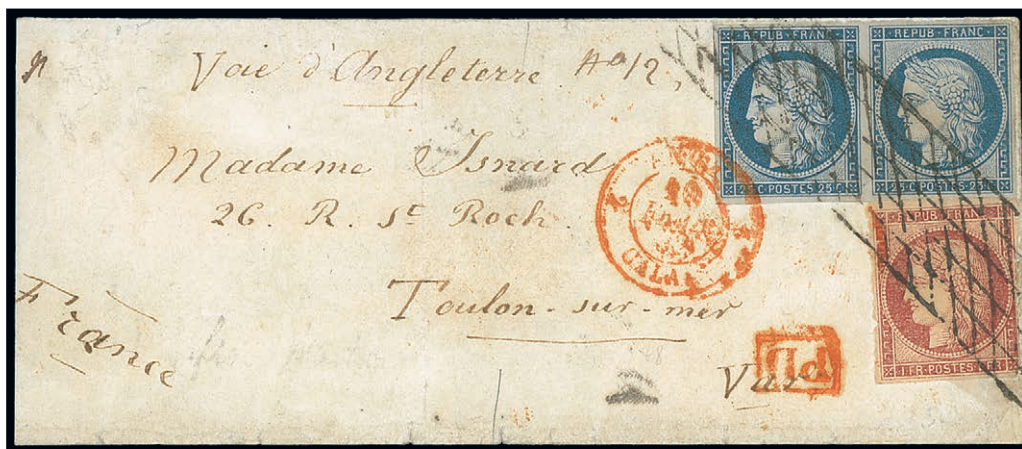 Voie d'Angleterre
Madame Isnard
26. R. St Roch.
Toulon-sur-mer
Var
France
REPUB·FRANC·
25 C·POSTES·25 C
REPUB·FRANC·
25 C·POSTES·25
REPUB·FRANC
1 FR·POSTES·1 FR
CALAIS
PD